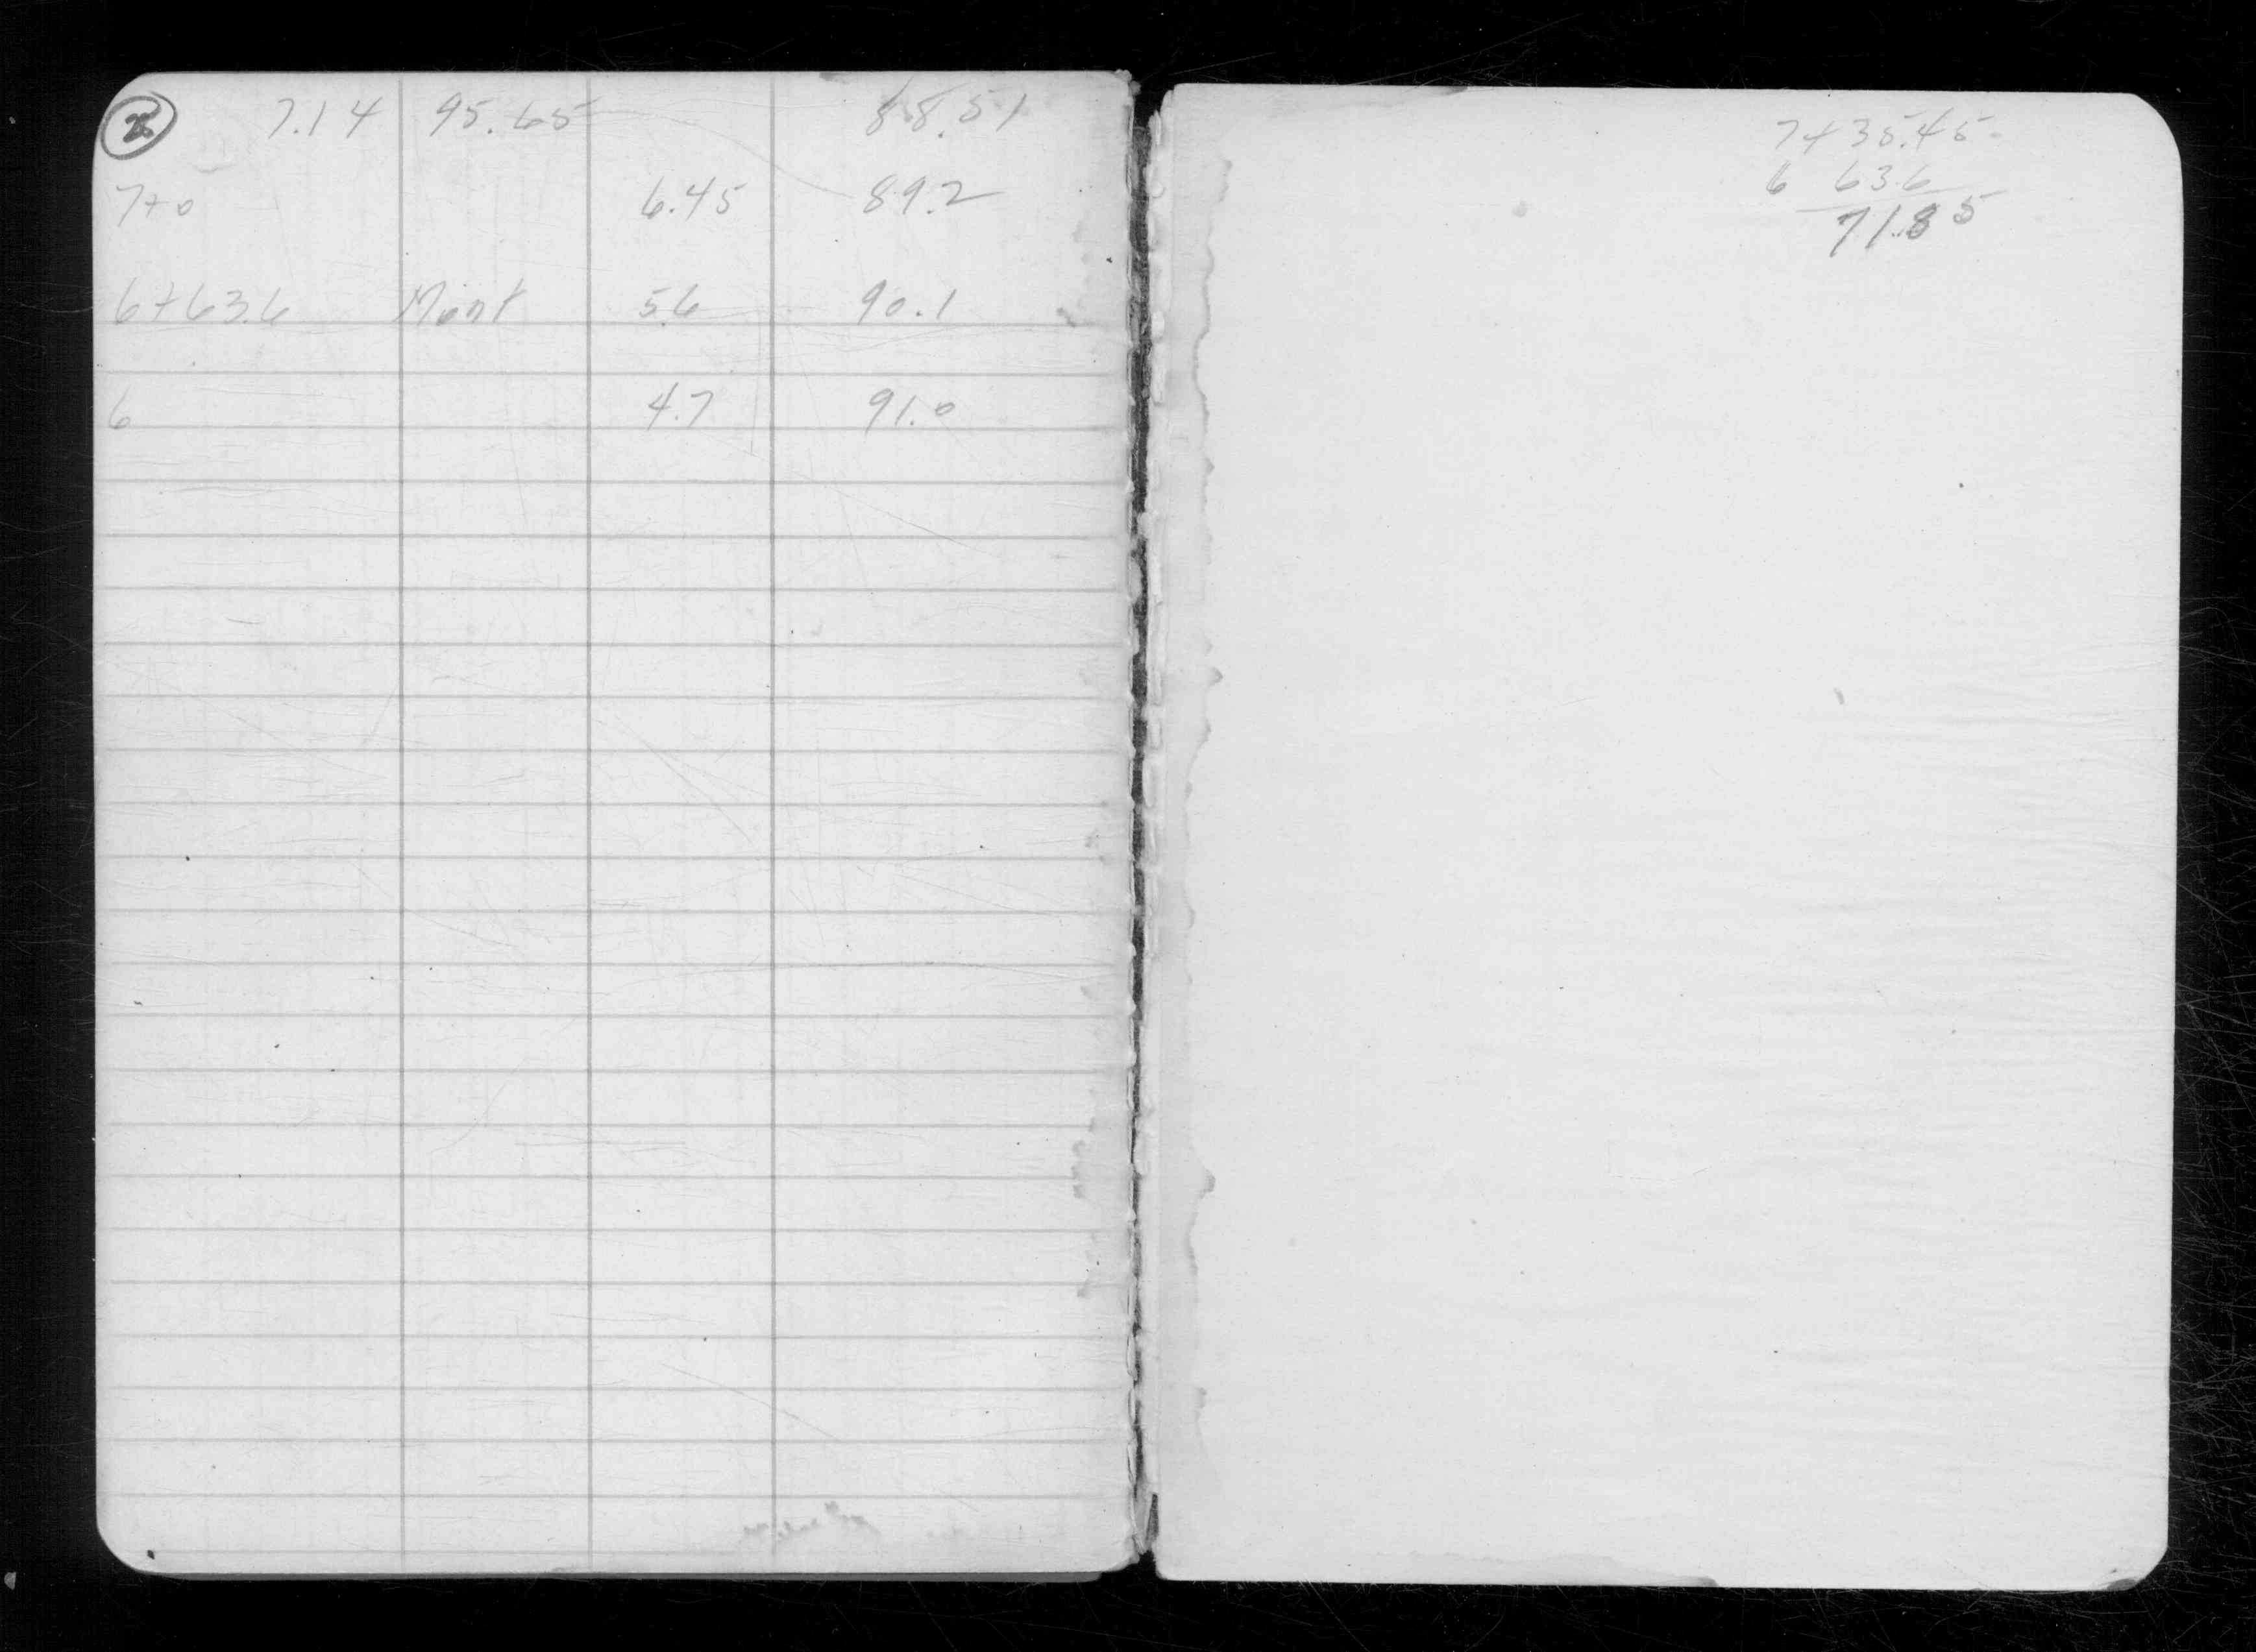 7.14 95.65 88.51
7+0 6.45 89.2
6+63.6 Mont 5.6 90.1
6 4.7 91.0
7+35.45
6 63.6
71.85